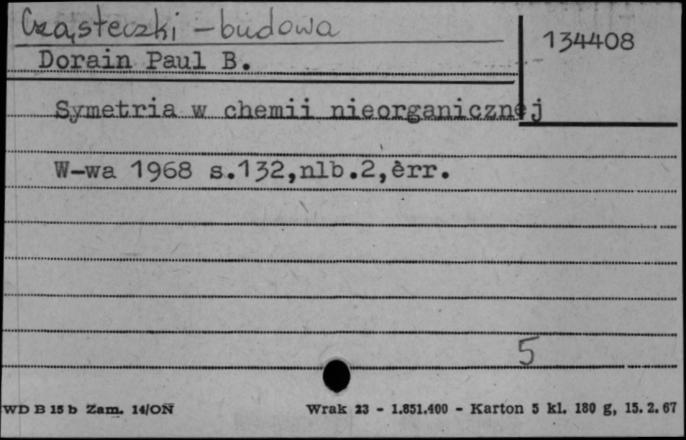 Cząsteczki - budowa
134408
Dorain Paul B.
Symetria w chemii nieorganicznej
W-wa 1968 s.132,nlb.2,èrr.
5
WD B 15 b Zam. 14/ON Wrak 23 - 1.851.400 - Karton 5 kl. 180 g, 15. 2. 67